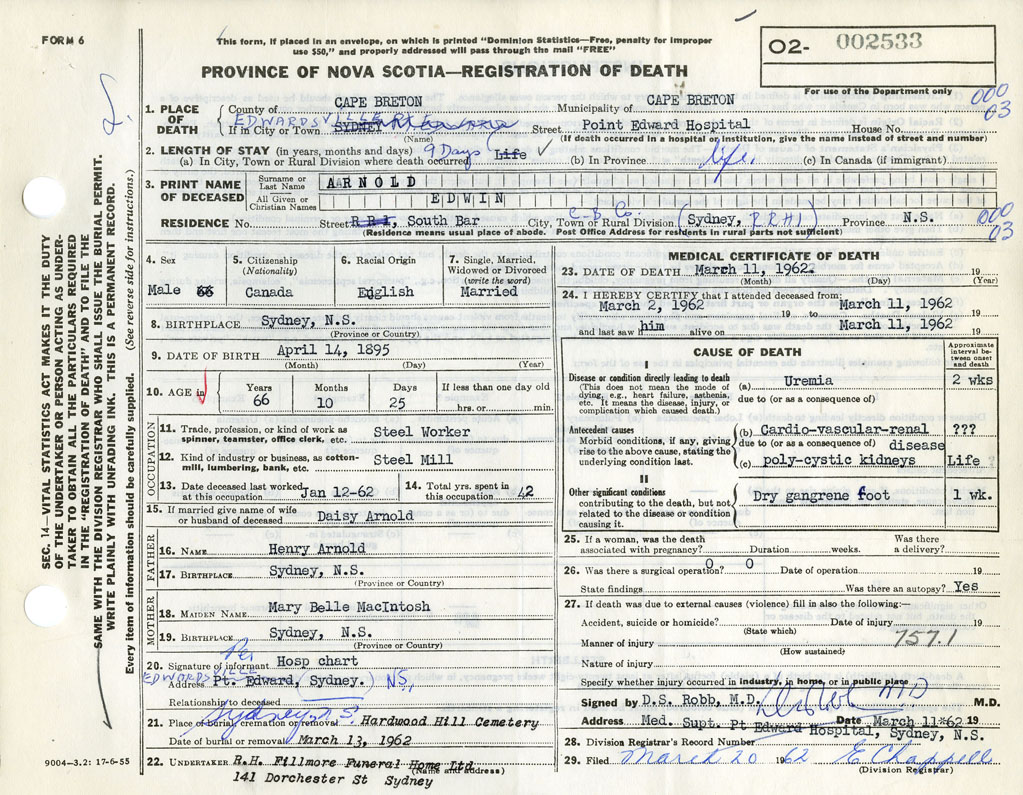 FORM 6
This form, if placed in an envelope, on which is printed "Dominion Statistics—Free, penalty for improper
use $50," and properly addressed will pass through the mail "FREE"
PROVINCE OF NOVA SCOTIA—REGISTRATION OF DEATH
O2- 002533
For use of the Department only
000
03
1. PLACE OF DEATH
County of CAPE BRETON Municipality of CAPE BRETON
EDWARDSVILLE
If in City or Town SYDNEY Street Point Edward Hospital House No.
(Name) (If death occurred in a hospital or institution, give the name instead of street and number)
2. LENGTH OF STAY (in years, months and days) 9 Days Life ✓ life.
(a) In City, Town or Rural Division where death occurred (b) In Province (c) In Canada (if immigrant)
3. PRINT NAME OF DECEASED
Surname or Last Name ARNOLD
All Given or Christian Names EDWIN
C-B Co.
RESIDENCE No. Street R R 1, South Bar City, Town or Rural Division (Sydney, RR#1) Province N.S.
(Residence means usual place of abode. Post Office Address for residents in rural parts not sufficient)
000
03
4. Sex
Male 66
5. Citizenship
(Nationality)
Canada
6. Racial Origin
English
7. Single, Married,
Widowed or Divorced
(write the word)
Married
8. BIRTHPLACE Sydney, N.S.
(Province or Country)
9. DATE OF BIRTH April 14, 1895
(Month) (Day) (Year)
10. AGE in
Years Months Days If less than one day old
66 10 25 hrs. or min.
OCCUPATION
11. Trade, profession, or kind of work as
spinner, teamster, office clerk, etc. Steel Worker
12. Kind of industry or business, as cotton-
mill, lumbering, bank, etc. Steel Mill
13. Date deceased last worked
at this occupation Jan 12-62
14. Total yrs. spent in
this occupation 42
15. If married give name of wife
or husband of deceased Daisy Arnold
FATHER
16. NAME Henry Arnold
17. BIRTHPLACE Sydney, N.S.
(Province or Country)
MOTHER
18. MAIDEN NAME Mary Belle MacIntosh
19. BIRTHPLACE Sydney, N.S.
(Province or Country)
Per
20. Signature of informant Hosp chart
EDWARDSVILLE
Address Pt. Edward, (Sydney.) NS,
Relationship to deceased
Sydney N.S.
21. Place of burial, cremation or removal Hardwood Hill Cemetery
Date of burial or removal March 13, 1962
22. UNDERTAKER R.H. Fillmore Funeral Home Ltd
(Name and address)
141 Dorchester St Sydney
MEDICAL CERTIFICATE OF DEATH
23. DATE OF DEATH March 11, 1962. 19
(Month) (Day) (Year)
24. I HEREBY CERTIFY that I attended deceased from
March 2, 1962 19 to March 11, 1962
and last saw him alive on March 11, 1962 19
CAUSE OF DEATH
Approximate interval between onset and death
I
Disease or condition directly leading to death
(This does not mean the mode of
dying, e.g., heart failure, asthenia,
etc. It means the disease, injury, or
complication which caused death.)
(a) Uremia 2 wks
due to (or as a consequence of)
Antecedent causes
Morbid conditions, if any, giving
rise to the above cause, stating the
underlying condition last.
(b) Cardio-vascular-renal ???
due to (or as a consequence of) disease
(c) poly-cystic kidneys Life ?
II
Other significant conditions
contributing to the death, but not
related to the disease or condition
causing it.
Dry gangrene foot 1 wk.
25. If a woman, was the death
associated with pregnancy? Duration weeks. Was there
a delivery?
26. Was there a surgical operation? 0 0 Date of operation 19
State findings Was there an autopsy? Yes
27. If death was due to external causes (violence) fill in also the following:—
Accident, suicide or homicide? Date of injury 19
(State which)
757.1
Manner of injury
(How sustained)
Nature of injury
Specify whether injury occurred in industry, in home, or in public place
Signed by D.S. Robb, M.D. MD M.D.
Address Med. Supt. Pt Edward Hospital, Sydney, N.S. Date March 11*62 19
28. Division Registrar's Record Number
29. Filed March 20 1962 E Chappell
(Division Registrar)
SEC. 14—VITAL STATISTICS ACT MAKES IT THE DUTY
OF THE UNDERTAKER OR PERSON ACTING AS UNDER-
TAKER TO OBTAIN ALL THE PARTICULARS REQUIRED
IN THE "REGISTRATION OF DEATH" AND TO FILE THE
SAME WITH THE DIVISION REGISTRAR WHO SHALL ISSUE THE BURIAL PERMIT.
WRITE PLAINLY WITH UNFADING INK. THIS IS A PERMANENT RECORD.
Every item of information should be carefully supplied. (See reverse side for instructions.)
9004-3.2: 17-6-55